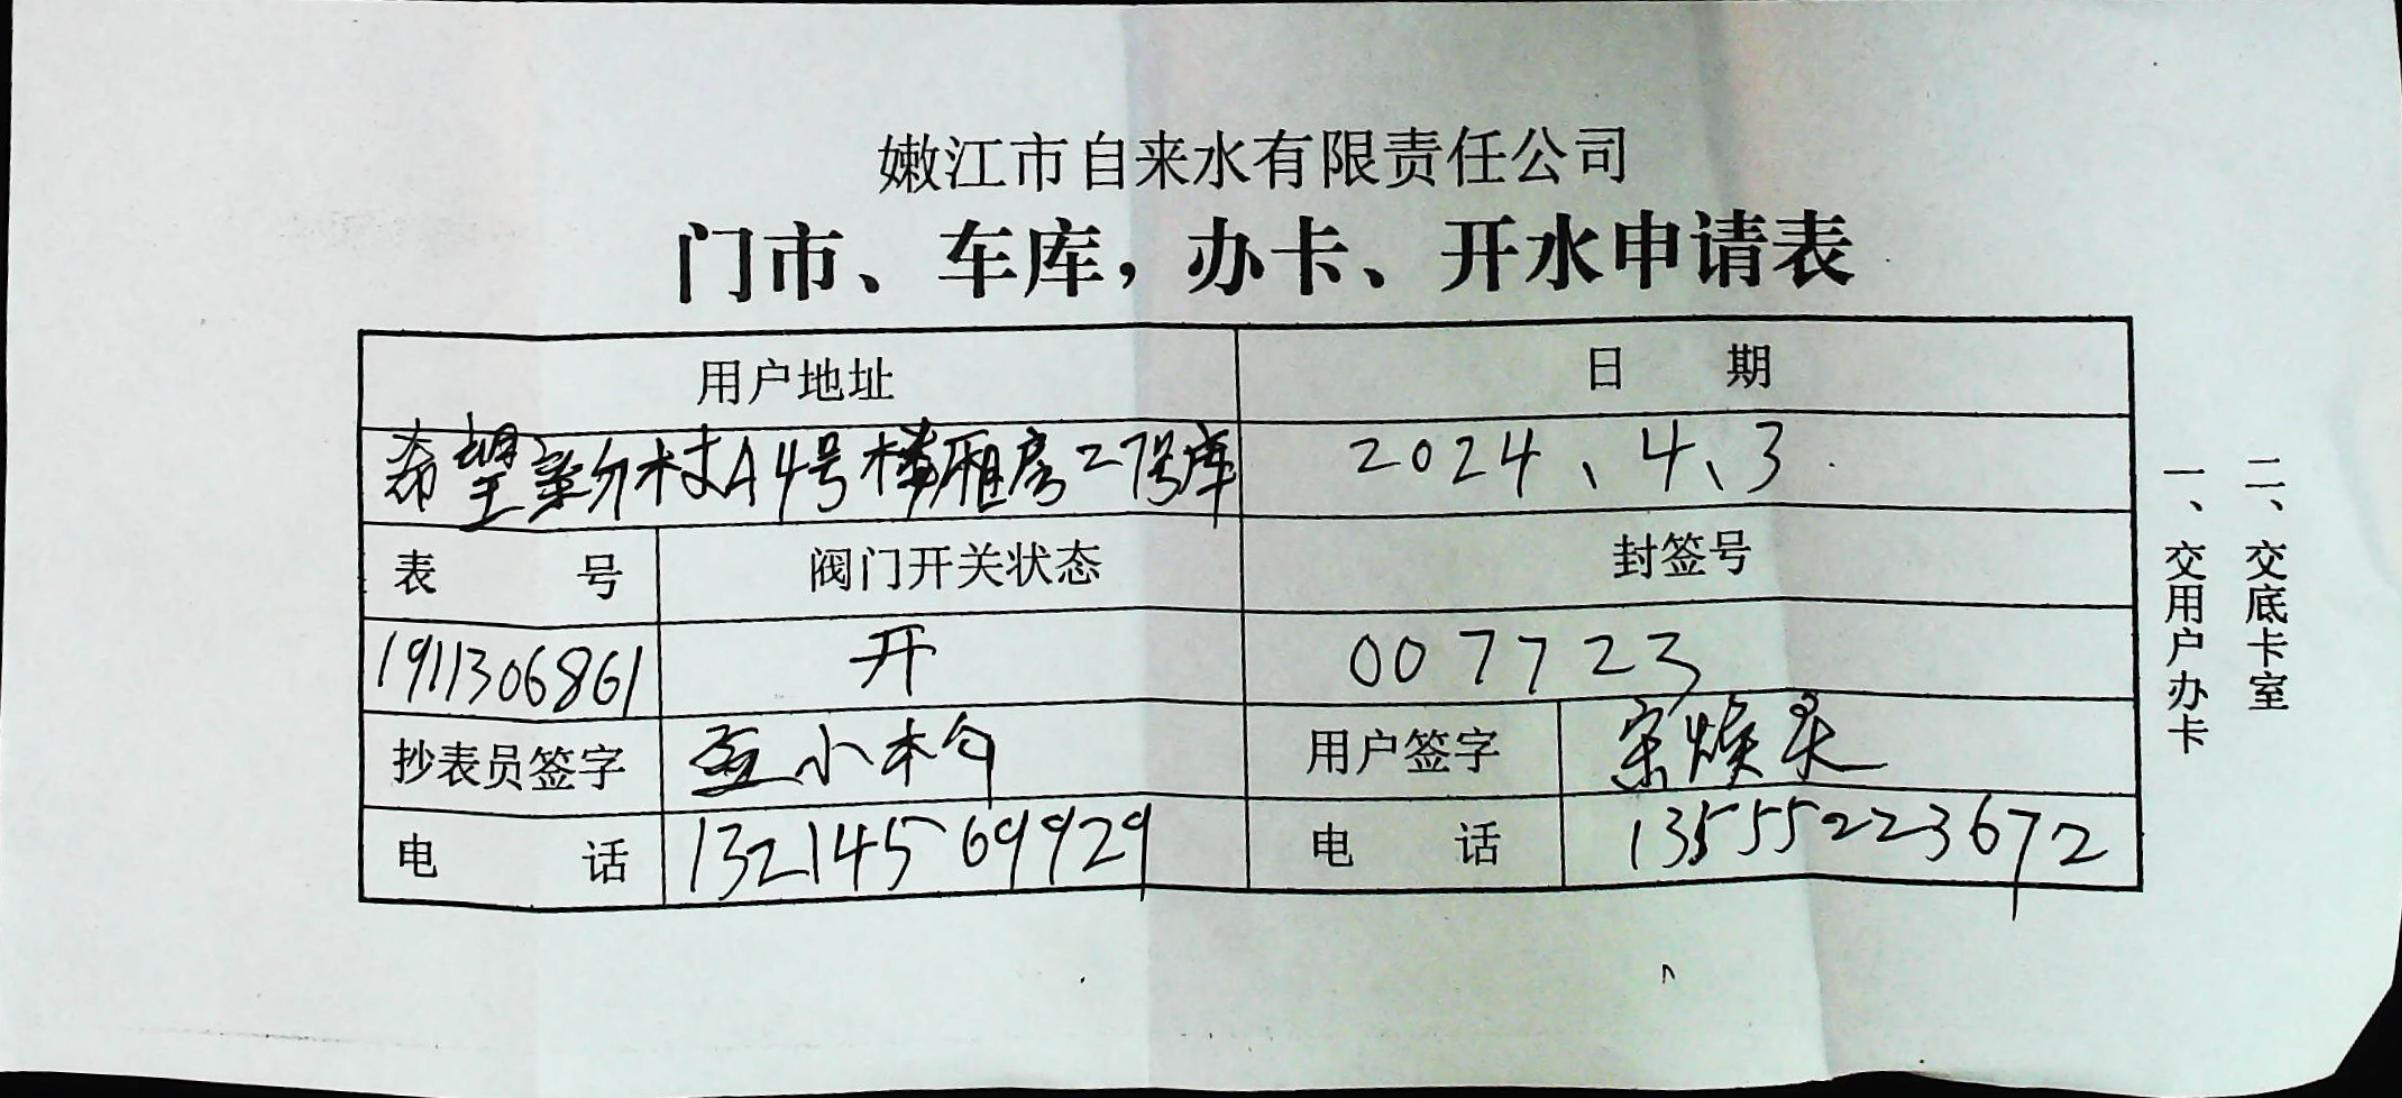 嫩江市自来水有限责任公司
门市、车库，办卡、开水申请表
用户地址 日 期
希望新村A4号楼厢房27号库 2024、4、3
表 号 阀门开关状态 封签号
1911306861 开 007723
抄表员签字 用户签字
电 话 13214569929 电 话 13555223672
一、交用户办卡
二、交底卡室